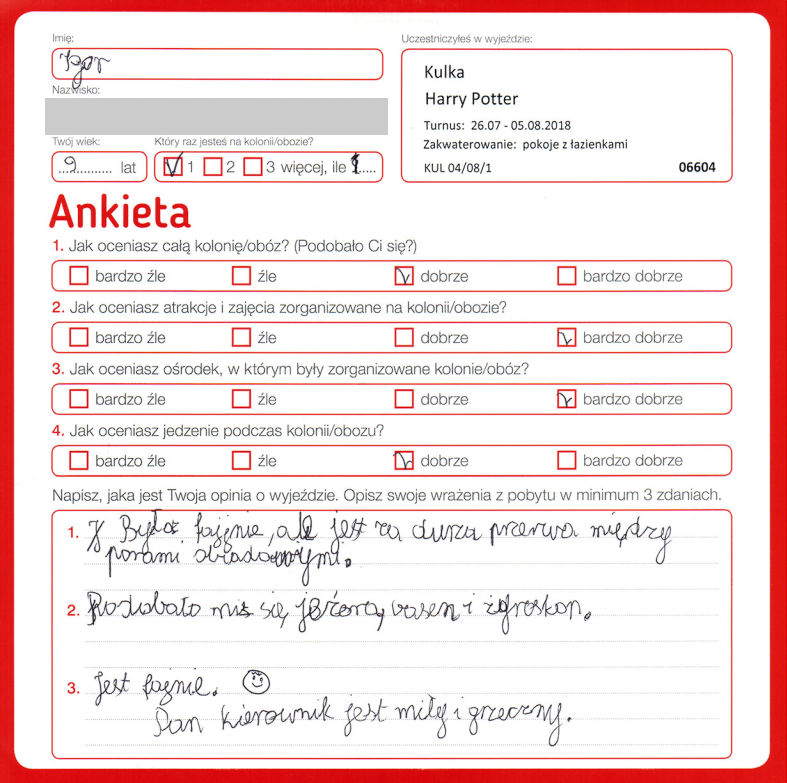 Imię:
Igor
Nazwisko:
Uczestniczyłeś w wyjeździe:
Kulka
Harry Potter
Turnus: 26.07 - 05.08.2018
Zakwaterowanie: pokoje z łazienkami
KUL 04/08/1 06604
Twój wiek: Który raz jesteś na kolonii/obozie?
9 lat 1 2 3 więcej, ile 1
Ankieta
1. Jak oceniasz całą kolonię/obóz? (Podobało Ci się?)
bardzo źle źle dobrze bardzo dobrze
2. Jak oceniasz atrakcje i zajęcia zorganizowane na kolonii/obozie?
bardzo źle źle dobrze bardzo dobrze
3. Jak oceniasz ośrodek, w którym były zorganizowane kolonie/obóz?
bardzo źle źle dobrze bardzo dobrze
4. Jak oceniasz jedzenie podczas kolonii/obozu?
bardzo źle źle dobrze bardzo dobrze
Napisz, jaka jest Twoja opinia o wyjeździe. Opisz swoje wrażenia z pobytu w minimum 3 zdaniach.
1. Było fajnie, ale jest za durza przerwa między
porami obiadowymi.
2. Podobało mi się jezioro, basen i
3. Jest fajnie.
Pan kierownik jest miły i grzeczny.